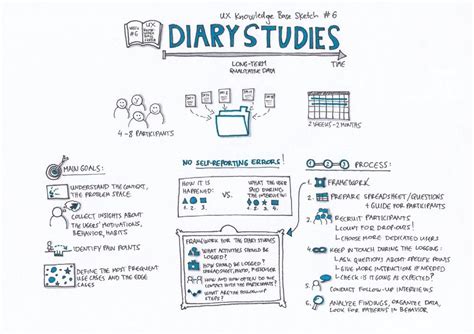 UX Knowledge Base Sketch #6
DIARY STUDIES
LONG-TERM
QUALITATIVE DATA
TIME
4-8 PARTICIPANTS
2 WEEKS-2 MONTHS
MAIN GOALS:
UNDERSTAND THE CONTEXT,
THE PROBLEM SPACE
COLLECT INSIGHTS ABOUT
THE USERS' MOTIVATIONS,
BEHAVIOR, HABITS
IDENTIFY PAIN POINTS
DEFINE THE MOST FREQUENT
USE CASES AND THE EDGE
CASES
NO SELF-REPORTING ERRORS!
HOW IT IS
HAPPENED:
1. 2. 3. 4.
VS.
WHAT THE USER
SAID DURING
THE INTERVIEW:
FRAMEWORK FOR THE DIARY STUDIES
WHAT ACTIVITIES SHOULD BE
LOGGED?
HOW SHOULD BE LOGGED?
HOW AND HOW OFTEN TO
CONTACT WITH THE PARTICIPANTS?
WHAT ARE THE FOLLOW-UP
STEPS?
1 2 3 PROCESS:
1. FRAMEWORK
2. PREPARE SPREADSHEET/QUESTIONS
+ GUIDE FOR PARTICIPANTS
3. RECRUIT PARTICIPANTS
COUNT FOR DROPOUTS!
CHOOSE MORE DEDICATED USERS
4. KEEP IN TOUCH DURING THE LOGGING:
ASK QUESTIONS ABOUT SPECIFIC POINTS
GIVE MORE INSTRUCTION IF NEEDED
CHECK: IS IT GOING AS EXPECTED?
5. CONDUCT FOLLOW-UP INTERVIEWS
6. ANALYZE FINDINGS, ORGANIZE DATA,
LOOK FOR PATTERNS IN BEHAVIOR